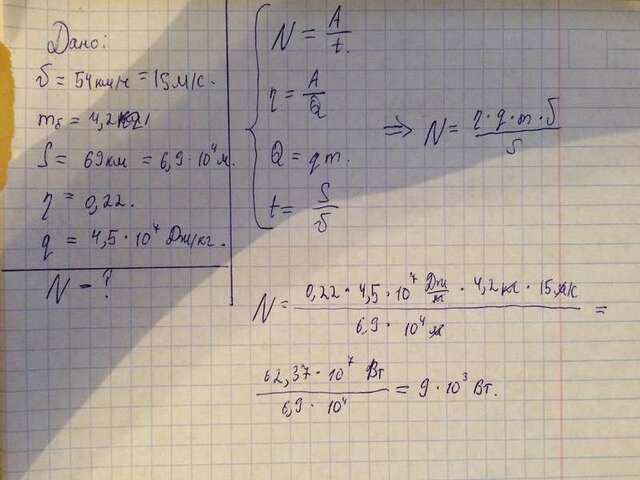 Дано:
υ = 54 км/ч = 15 м/с.
mб = 4,2 кг
S = 69 км = 6,9 · 10⁴ м.
η = 0,22.
q = 4,5 · 10⁷ Дж/кг.
N - ?
N = A/t.
η = A/Q
Q = qm.
t = S/υ
⇒ N = η·q·m·υ/S
N = 0,22 · 4,5 · 10⁷ Дж/кг · 4,2 кг · 15 м/с / 6,9 · 10⁴ м =
62,37 · 10⁷ Вт / 6,9 · 10⁴ = 9 · 10³ Вт.